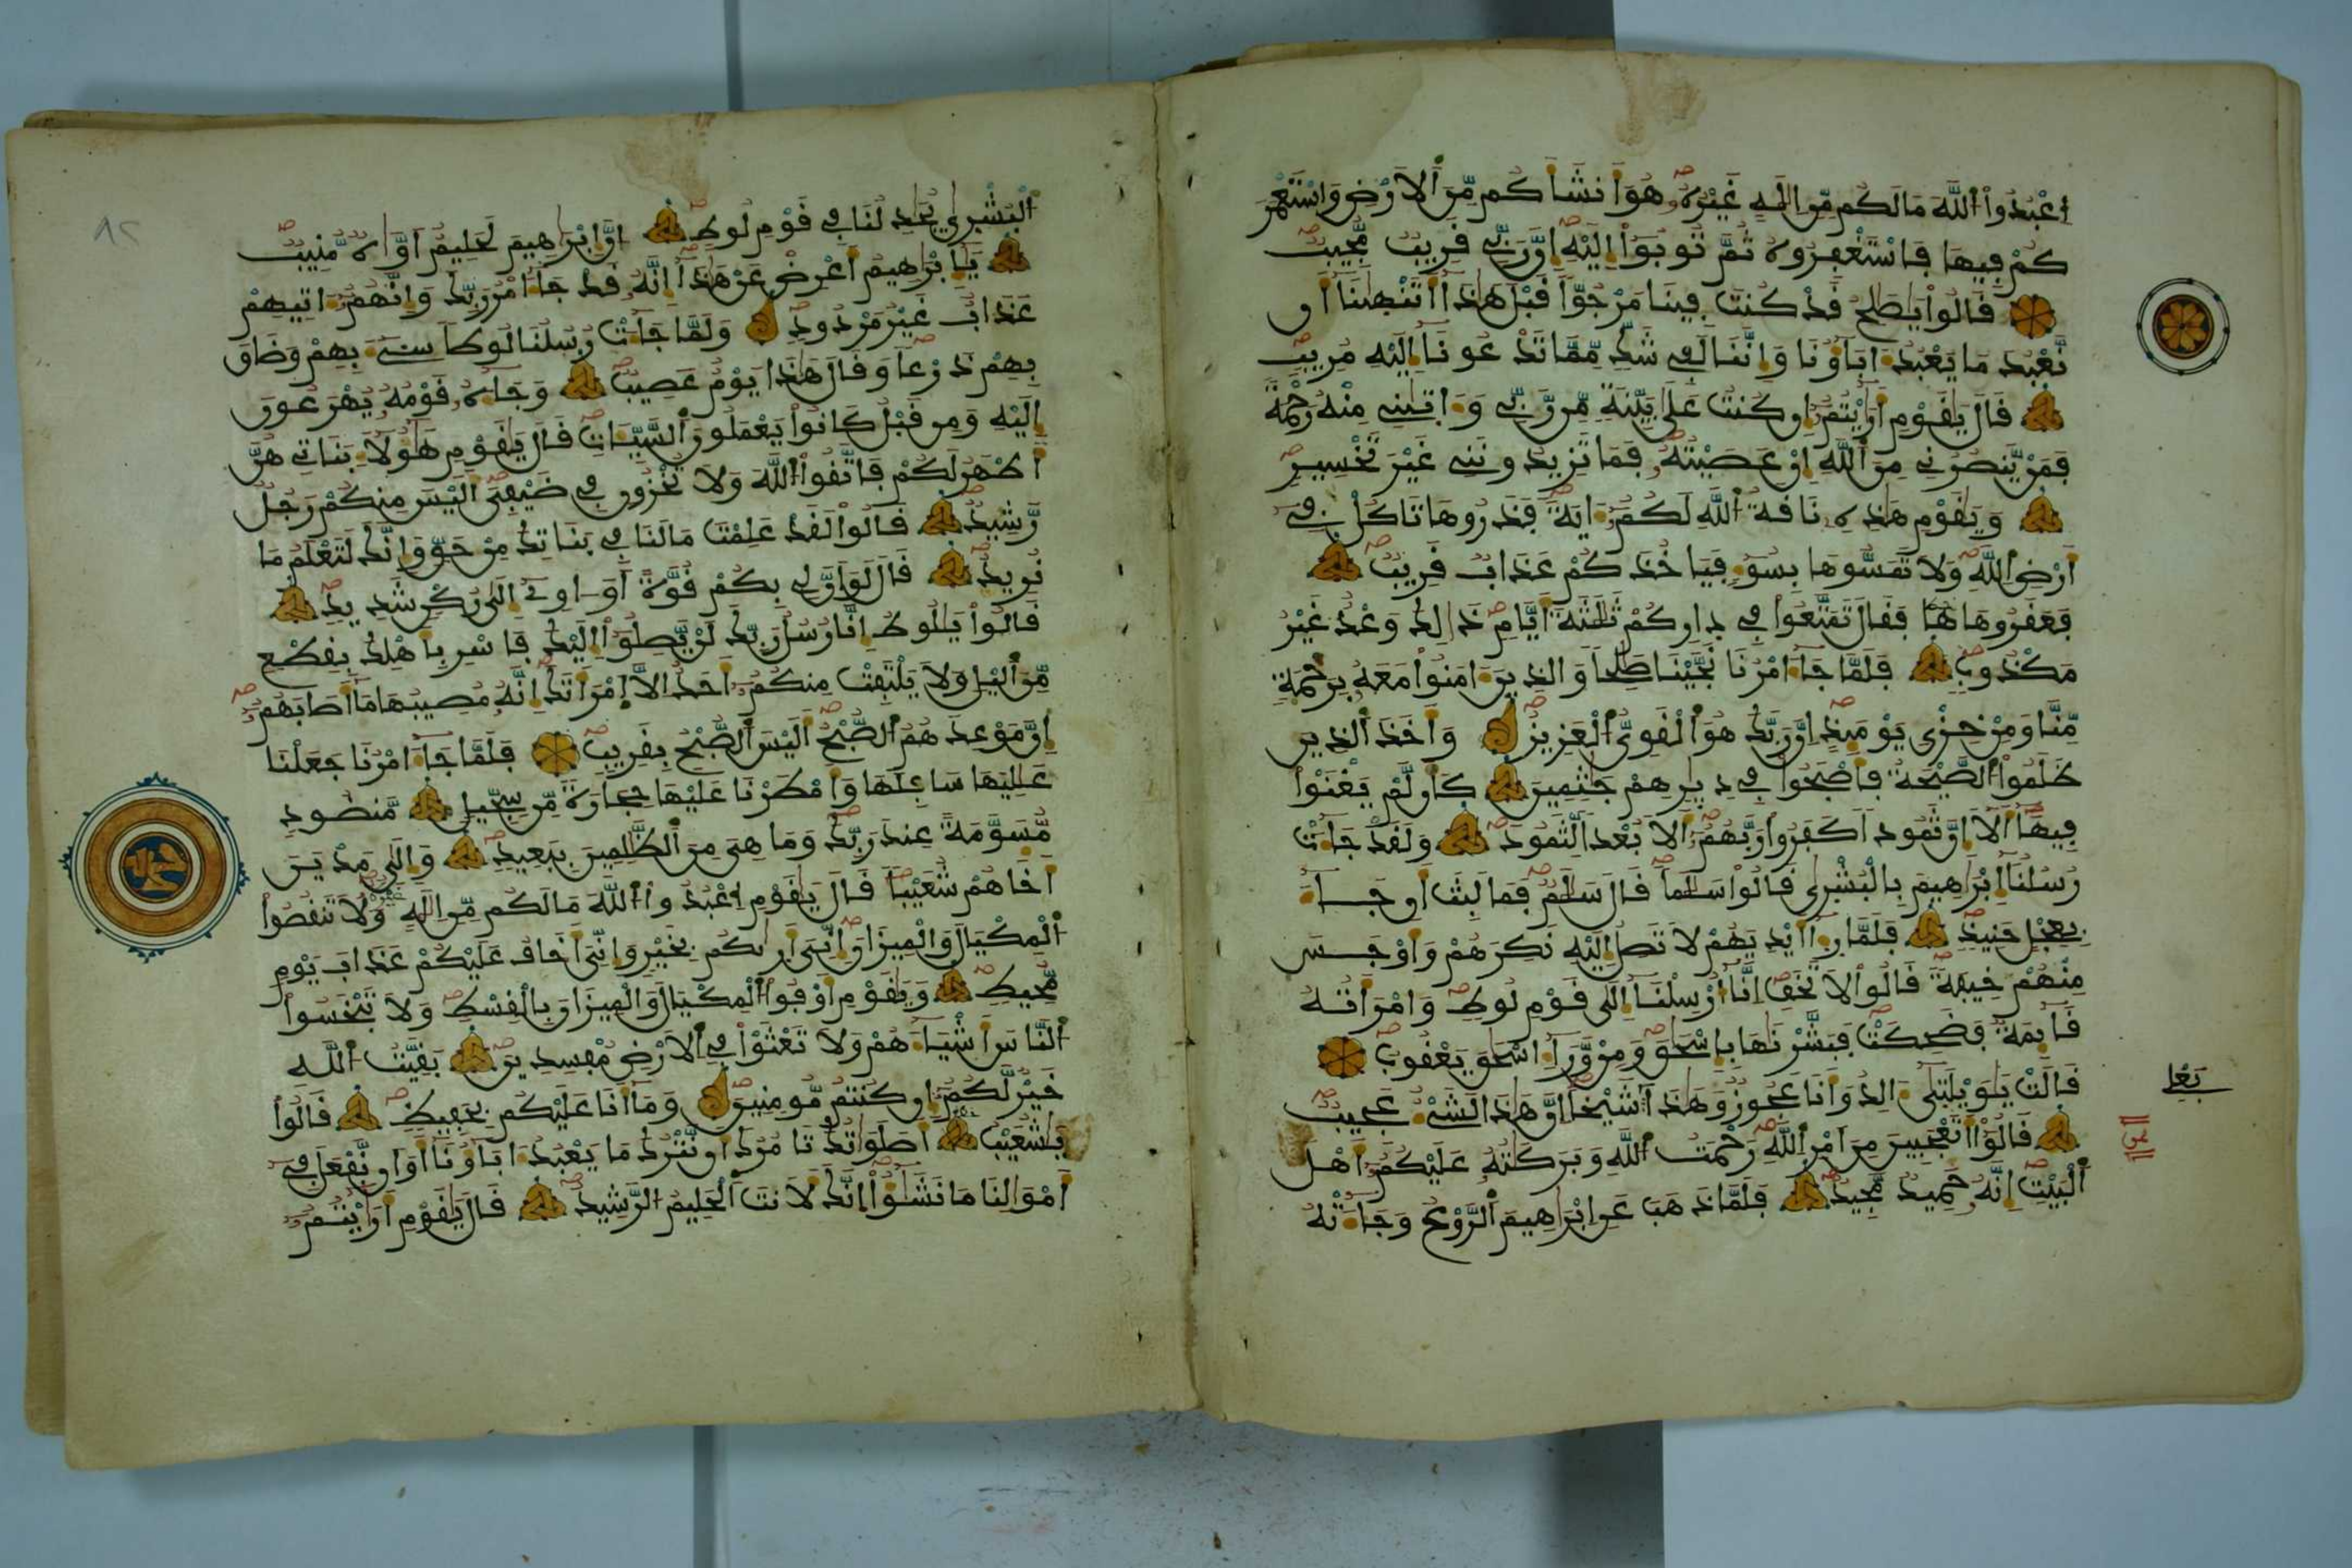 اَعْبُدُواْ اَللَّهَ مَا لَكُم مِّنِ اِلَٰهٍ غَيْرُهُۥ هُوَ أَنشَأَكُم مِّنَ اَلَارْضِ وَاسْتَعْمَرَ
كُمْ فِيهَا فَاسْتَغْفِرُوهُ ثُمَّ تُوبُوٓاْ إِلَيْهِ إِنَّ رَبِّے قَرِيبٌ مُّجِيبٌ
قَالُواْ يَٰصَٰلِحُ قَدْ كُنتَ فِينَا مَرْجُوّاً قَبْلَ هَٰذَآ أَتَنْهَىٰنَآ أَن
نَّعْبُدَ مَا يَعْبُدُ ءَابَآؤُنَا وَإِنَّنَا لَفِے شَكٍّ مِّمَّا تَدْعُونَآ إِلَيْهِ مُرِيبٍ
قَالَ يَٰقَوْمِ أَرَٰيْتُمُۥٓ إِن كُنتُ عَلَىٰ بَيِّنَةٍ مِّن رَّبِّے وَءَاتَىٰنِے مِنْهُ رَحْمَةً
فَمَنْ يَّنصُرُنِے مِنَ اَللَّهِ إِنْ عَصَيْتُهُۥ فَمَا تَزِيدُونَنِے غَيْرَ تَخْسِيرٍ
وَيَٰقَوْمِ هَٰذِهِۦ نَاقَةُ اُللَّهِ لَكُمُۥٓ ءَايَةً فَذَرُوهَا تَاكُلْ فِےٓ
أَرْضِ اِللَّهِ وَلَا تَمَسُّوهَا بِسُوٓءٍ فَيَاخُذَكُمْ عَذَابٌ قَرِيبٌ
فَعَقَرُوهَا فَقَالَ تَمَتَّعُواْ فِے دِارِكُمْ ثَلَٰثَةَ أَيَّامٍ ذَٰلِكَ وَعْدٌ غَيْرُ
مَكْذُوبٍ فَلَمَّا جَآءَ امْرُنَا نَجَّيْنَا صَٰلِحاً وَالذِينَ ءَامَنُواْ مَعَهُۥ بِرَحْمَةٍ
مِّنَّا وَمِنْ خِزْىِ يَوْمَئِذٍ اِنَّ رَبَّكَ هُوَ اَلْقَوِىُّ اُلْعَزِيزُ وَأَخَذَ اَلذِينَ
ظَلَمُواْ اُلصَّيْحَةُ فَأَصْبَحُواْ فِے دِيٰرِهِمْ جَٰثِمِينَ كَأَن لَّمْ يَغْنَوْاْ
فِيهَآ أَلَآ إِنَّ ثَمُوداً كَفَرُواْ رَبَّهُمُۥٓ أَلَا بُعْداً لِّثَمُودَ وَلَقَدْ جَآءَتْ
رُسُلُنَآ إِبْرَٰهِيمَ بِالْبُشْرٰىٰ قَالُواْ سَلَٰماً قَالَ سَلَٰمٌ فَمَا لَبِثَ أَن جَآءَ
بِعِجْلٍ حَنِيذٍ فَلَمَّا رِءَآ أَيْدِيَهُمْ لَا تَصِلُ إِلَيْهِ نَكِرَهُمْ وَأَوْجَسَ
مِنْهُمْ خِيفَةً قَالُواْ لَا تَخَفِ اِنَّآ أُرْسِلْنَآ إِلَىٰ قَوْمِ لُوطٍ وَامْرَأَتُهُ
قَآئِمَةٌ فَضَحِكَتْ فَبَشَّرْنَٰهَا بِإِسْحَٰقَ وَمِنْ وَّرَآءِ اسْحَٰقَ يَعْقُوبُ
قَالَتْ يَٰوَيْلَتَىٰٓ ءَالِدُ وَأَنَا عَجُوزٌ وَهَٰذَا بَعْلِے شَيْخاً اِنَّ هَٰذَا لَشَےْءٌ عَجِيبٌ
قَالُوٓاْ أَتَعْجَبِينَ مِنَ اَمْرِ اِللَّهِ رَحْمَتُ اُللَّهِ وَبَرَكَٰتُهُۥ عَلَيْكُمُۥٓ أَهْلَ
اَلْبَيْتِ إِنَّهُۥ حَمِيدٌ مَّجِيدٌ فَلَمَّا ذَهَبَ عَنِ اِبْرَٰهِيمَ اَلرَّوْعُ وَجَآءَتْهُ
اُلْبُشْرٰىٰ يُجَٰدِلُنَا فِے قَوْمِ لُوطٍ اِنَّ إِبْرَٰهِيمَ لَحَلِيمٌ أَوَّٰهٌ مُّنِيبٌ
يَٰٓإِبْرَٰهِيمُ أَعْرِضْ عَنْ هَٰذَآ إِنَّهُۥ قَد جَّآءَ امْرُ رَبِّكَ وَإِنَّهُمُۥٓ ءَاتِيهِمْ
عَذَابٌ غَيْرُ مَرْدُودٍ وَلَمَّا جَآءَتْ رُسُلُنَا لُوطاً سِےٓءَ بِهِمْ وَضَاقَ
بِهِمْ ذَرْعاً وَقَالَ هَٰذَا يَوْمٌ عَصِيبٌ وَجَآءَهُۥ قَوْمُهُۥ يُهْرَعُونَ
إِلَيْهِ وَمِن قَبْلُ كَانُواْ يَعْمَلُونَ اَلسَّيِّـَٔاتِ قَالَ يَٰقَوْمِ هَٰٓؤُلَآءِ بَنَاتِے هُنَّ
أَطْهَرُ لَكُمْ فَاتَّقُواْ اُللَّهَ وَلَا تُخْزُونِ فِے ضَيْفِىَ أَلَيْسَ مِنكُمْ رَجُلٌ
رَّشِيدٌ قَالُواْ لَقَدْ عَلِمْتَ مَا لَنَا فِے بَنَٰتِكَ مِنْ حَقٍّ وَإِنَّكَ لَتَعْلَمُ مَا
نُرِيدُ قَالَ لَوَ اَنَّ لِے بِكُمْ قُوَّةً أَوَ اٰوِےٓ إِلَىٰ رُكْنٍ شَدِيدٍ
قَالُواْ يَٰلُوطُ إِنَّا رُسُلُ رَبِّكَ لَنْ يَّصِلُوٓاْ إِلَيْكَ فَاسْرِ بِأَهْلِكَ بِقِطْعٍ
مِّنَ اَلَيْلِ وَلَا يَلْتَفِتْ مِنكُمُۥٓ أَحَدٌ اِلَّا اَمْرَأَتَكَ إِنَّهُۥ مُصِيبُهَا مَآ أَصَابَهُمُۥٓ
إِنَّ مَوْعِدَهُمُ اُلصُّبْحُ أَلَيْسَ اَلصُّبْحُ بِقَرِيبٍ فَلَمَّا جَآءَ امْرُنَا جَعَلْنَا
عَٰلِيَهَا سَافِلَهَا وَأَمْطَرْنَا عَلَيْهَا حِجَارَةً مِّن سِجِّيلٍ مَّنضُودٍ
مُّسَوَّمَةً عِندَ رَبِّكَ وَمَا هِىَ مِنَ اَلظَّٰلِمِينَ بِبَعِيدٍ وَإِلَىٰ مَدْيَنَ
أَخَاهُمْ شُعَيْباً قَالَ يَٰقَوْمِ اِعْبُدُواْ اُللَّهَ مَا لَكُم مِّنِ اِلَٰهٍ غَيْرُهُۥ وَلَا تَنقُصُواْ
اُلْمِكْيَالَ وَالْمِيزَانَ إِنِّىَ أَرٰىٰكُم بِخَيْرٍ وَإِنِّىَ أَخَافُ عَلَيْكُمْ عَذَابَ يَوْمٍ
مُّحِيطٍ وَيَٰقَوْمِ أَوْفُواْ اُلْمِكْيَالَ وَالْمِيزَانَ بِالْقِسْطِ وَلَا تَبْخَسُواْ
اُلنَّاسَ أَشْيَآءَهُمْ وَلَا تَعْثَوْاْ فِے اِلَارْضِ مُفْسِدِينَ بَقِيَّتُ اُللَّهِ
خَيْرٌ لَّكُمُۥٓ إِن كُنتُم مُّومِنِينَ وَمَآ أَنَا عَلَيْكُم بِحَفِيظٍ قَالُواْ
يَٰشُعَيْبُ أَصَلَوَٰتُكَ تَامُرُكَ أَن نَّتْرُكَ مَا يَعْبُدُ ءَابَآؤُنَآ أَوَ اَن نَّفْعَلَ فِےٓ
أَمْوَٰلِنَا مَا نَشَٰٓؤُاْ اِنَّكَ لَأَنتَ اَلْحَلِيمُ اُلرَّشِيدُ قَالَ يَٰقَوْمِ أَرَٰيْتُمُۥٓ
بَعْلِے